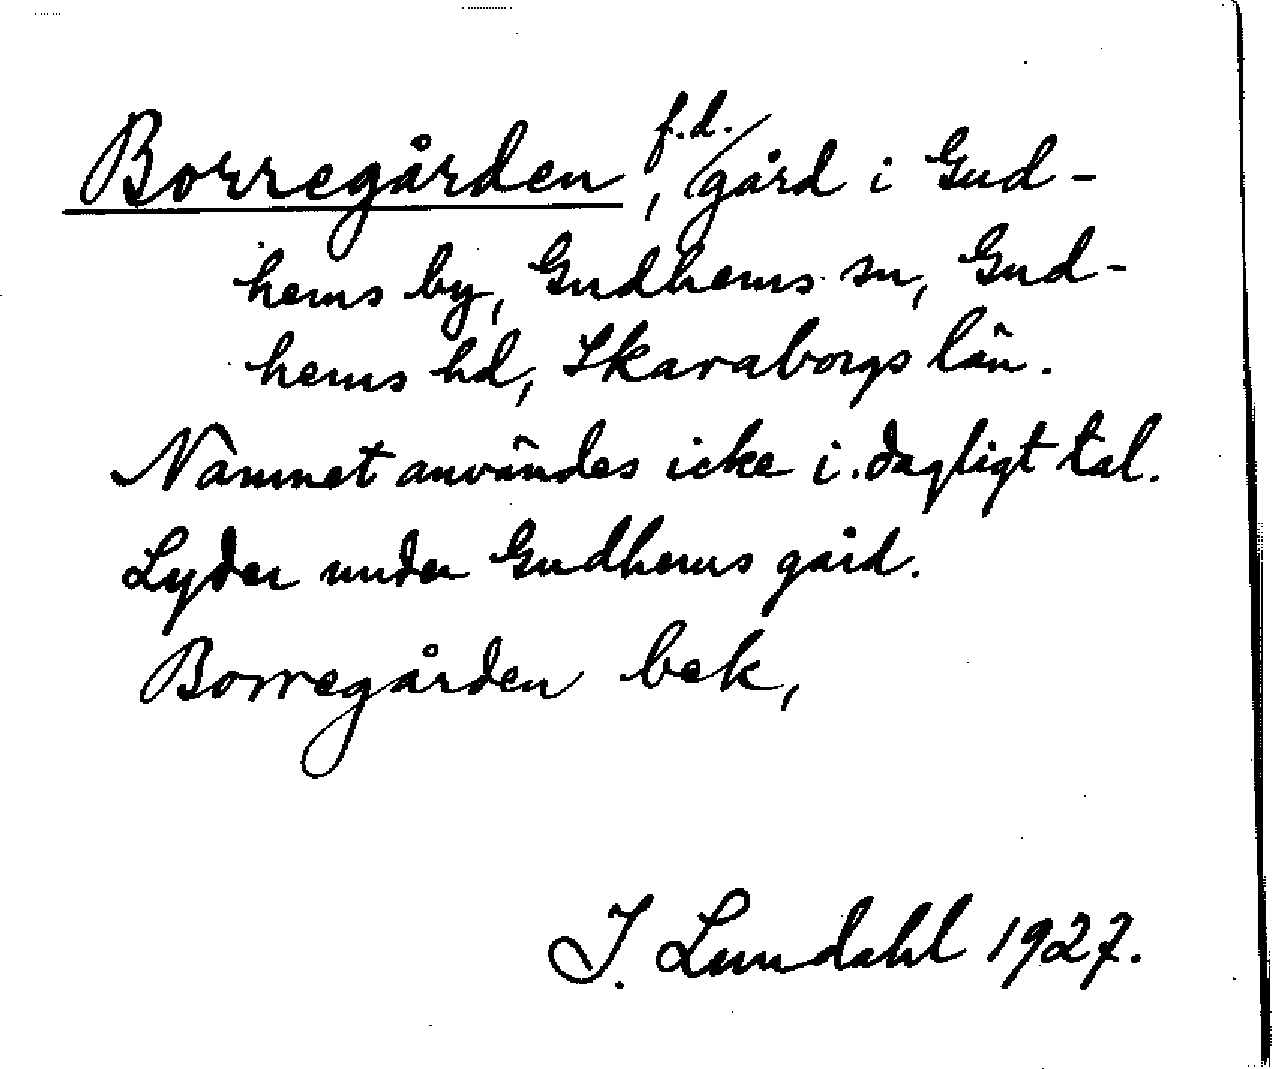 Borregården, f.d. gård i Gud-
hems by, Gudhems sn, Gud-
hems hd, Skaraborgs län.
Namnet användes icke i dagligt tal.
Lyder under Gudhems gård.
Borregården bek,
I. Lundahl 1927.